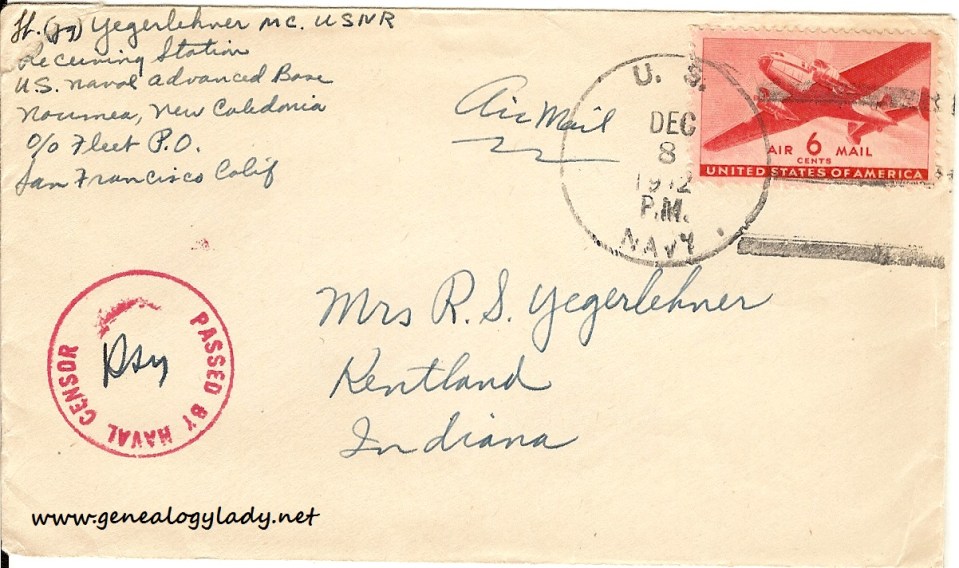 Lt. (jg) Yegerlehner MC. USNR
Receiving Station
U.S. Naval Advanced Base
Noumea, New Caledonia
c/o Fleet P.O.
San Francisco Calif
Air Mail
U. S.
DEC
8
1942
P.M.
NAVY
AIR 6 MAIL
CENTS
UNITED STATES OF AMERICA
Mrs R. S. Yegerlehner
Kentland
Indiana
PASSED BY NAVAL CENSOR
RSY
www.genealogylady.net